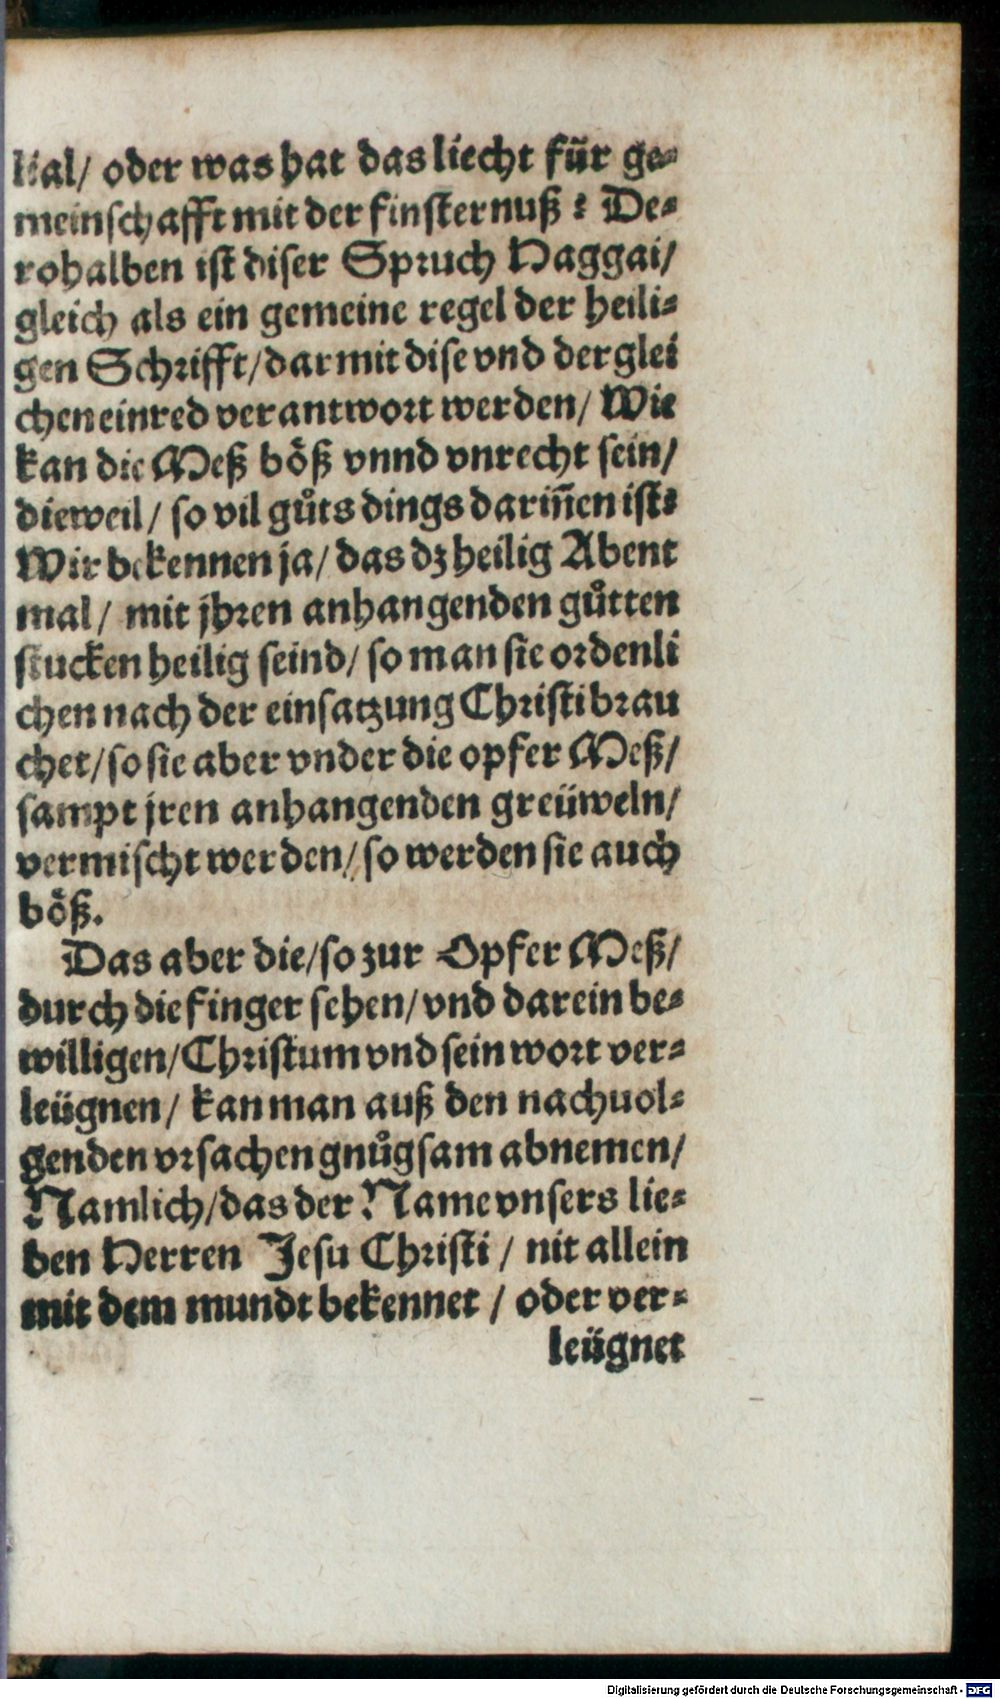 lial/ oder was hat das liecht für ge-
meinschafft mit der finsternuß? De-
rohalben ist diser Spruch Haggai/
gleich als ein gemeine regel der heili-
gen Schrifft/ darmit dise vnd derglei
chen einred verantwort werden/ Wie
kan die Meß böß vnnd vnrecht sein/
dieweil/ so vil guͦts dings dariñen ist?
Wir bekennen ja/ das dz heilig Abent
mal/ mit jhren anhangenden guͦtten
stucken heilig seind/ so man sie ordenli
chen nach der einsatzung Christi brau
chet/ so sie aber vnder die opfer Meß/
sampt jren anhangenden greüweln/
vermischt werden/ so werden sie auch
böß.
Das aber die/ so zur Opfer Meß/
durch die finger sehen/ vnd darein be-
willigen/ Christum vnd sein wort ver-
leügnen/ kan man auß den nachuol-
genden vrsachen gnuͦgsam abnemen/
Namlich/ das der Name vnsers lie-
ben Herren Jesu Christi/ nit allein
mit dem mundt bekennet/ oder ver-
leügnet
Digitalisierung gefördert durch die Deutsche Forschungsgemeinschaft - DFG